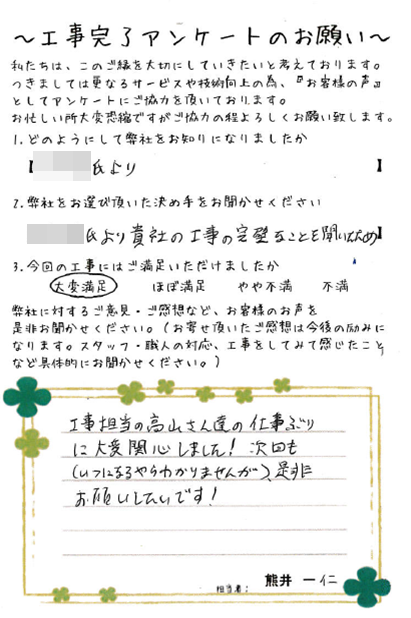 ～工事完了アンケートのお願い～
私たちは、このご縁を大切にしていきたいと考えております。
つきましては更なるサービスや技術向上の為、『お客様の声』
としてアンケートにご協力を頂いております。
お忙しい所大変恐縮ですがご協力の程よろしくお願い致します。
1.どのようにして弊社をお知りになりましたか
【 氏より 】
2.弊社をお選び頂いた決め手をお聞かせください
氏より貴社の工事の完璧なことを聞いたため】
3.今回の工事にはご満足いただけましたか
大変満足 ほぼ満足 やや不満 不満
弊社に対するご意見・ご感想など、お客様のお声を
是非お聞かせください。(お寄せ頂いたご感想は今後の励みに
なります。スタッフ・職人の対応、工事をしてみて感じたこと
など具体的にお聞かせください。)
工事担当の高山さん達の仕事ぶり
に大変関心しました! 次回も
(いつになるやらわかりませんが)、是非
お願いしたいです!
担当者: 熊井 一仁